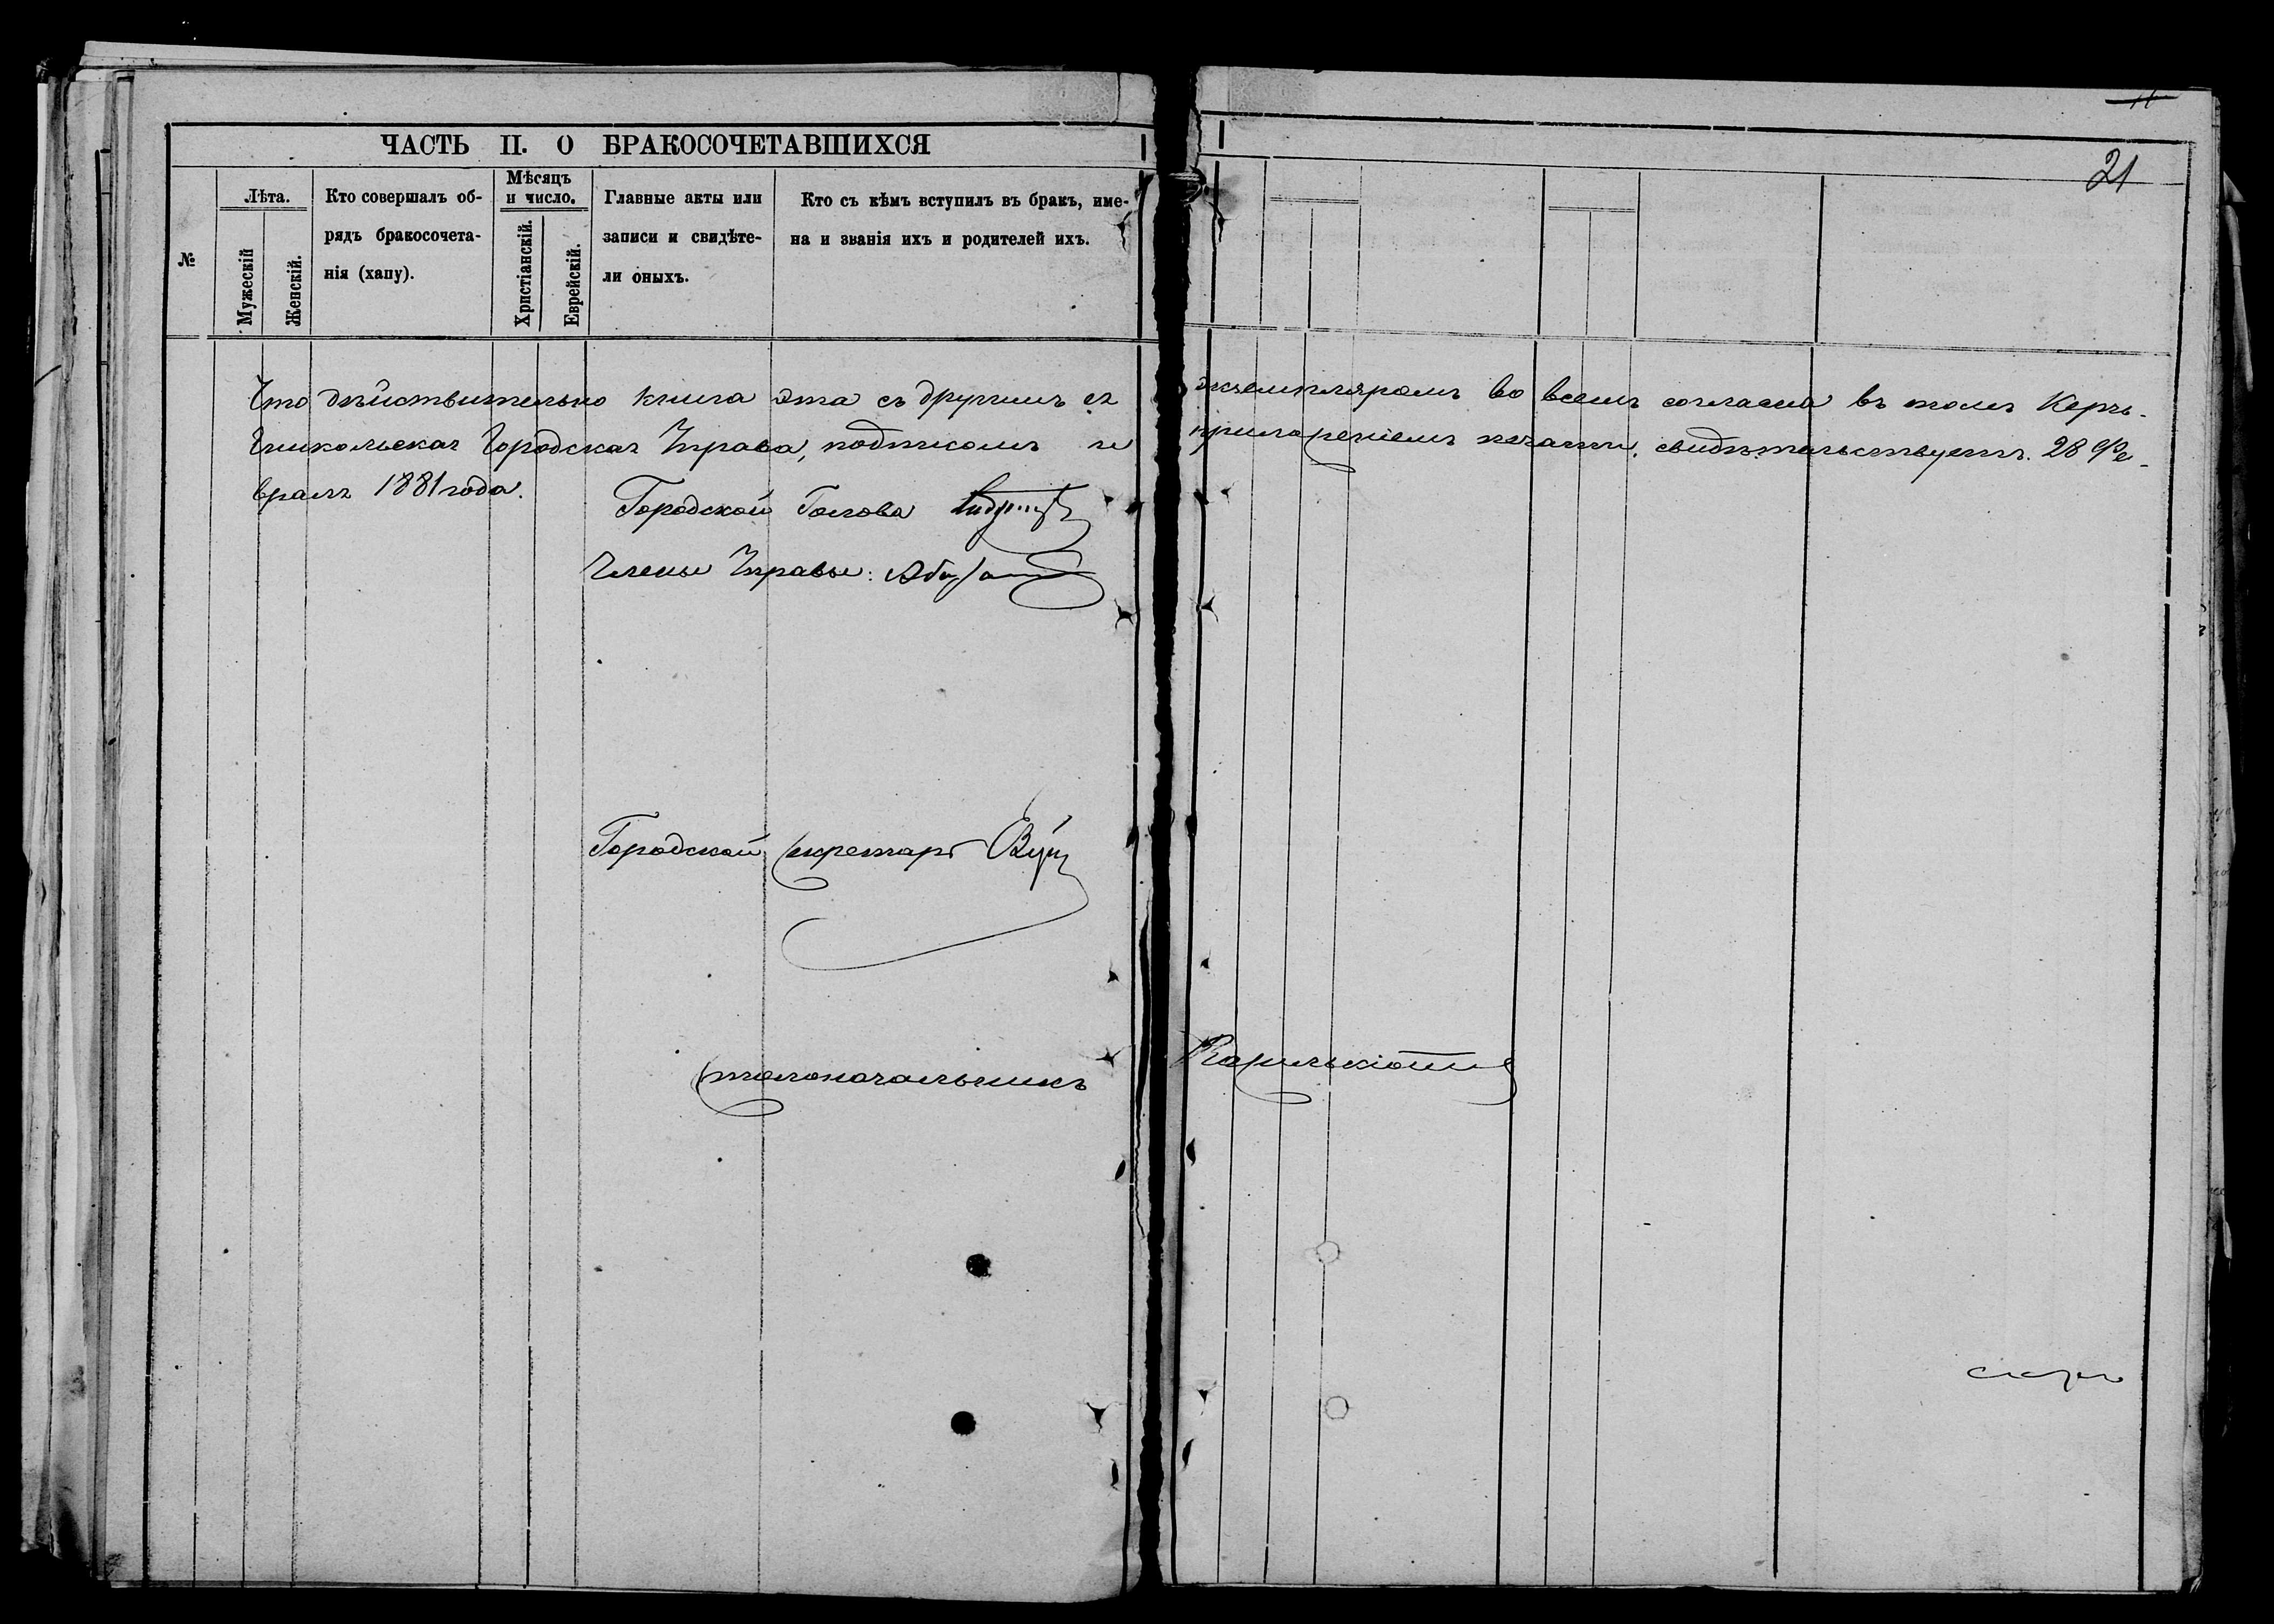 11
21
ЧАСТЬ II. О БРАКОСОЧЕТАВШИХСЯ
№
Лѣта.
Мужескій
Женскій.
Кто совершалъ об-
рядъ бракосочета-
нія (хапу).
Мѣсяцъ
и число.
Христіанскій.
Еврейскій.
Главные акты или
записи и свидѣте-
ли оныхъ.
Кто съ кѣмъ вступилъ въ бракъ, име-
на и званія ихъ и родителей ихъ.
Что дѣйствительно книга эта съ другимъ ея экземпляромъ во всемъ согласна въ томъ Керчь-
Еникольская Городская Управа, подписомъ и приложеніемъ печати, свидѣтельствуетъ. 28 Фе-
враля 1881 года.
Городской Голова
Члены Управы:
Городской Секретарь
Столоначальникъ